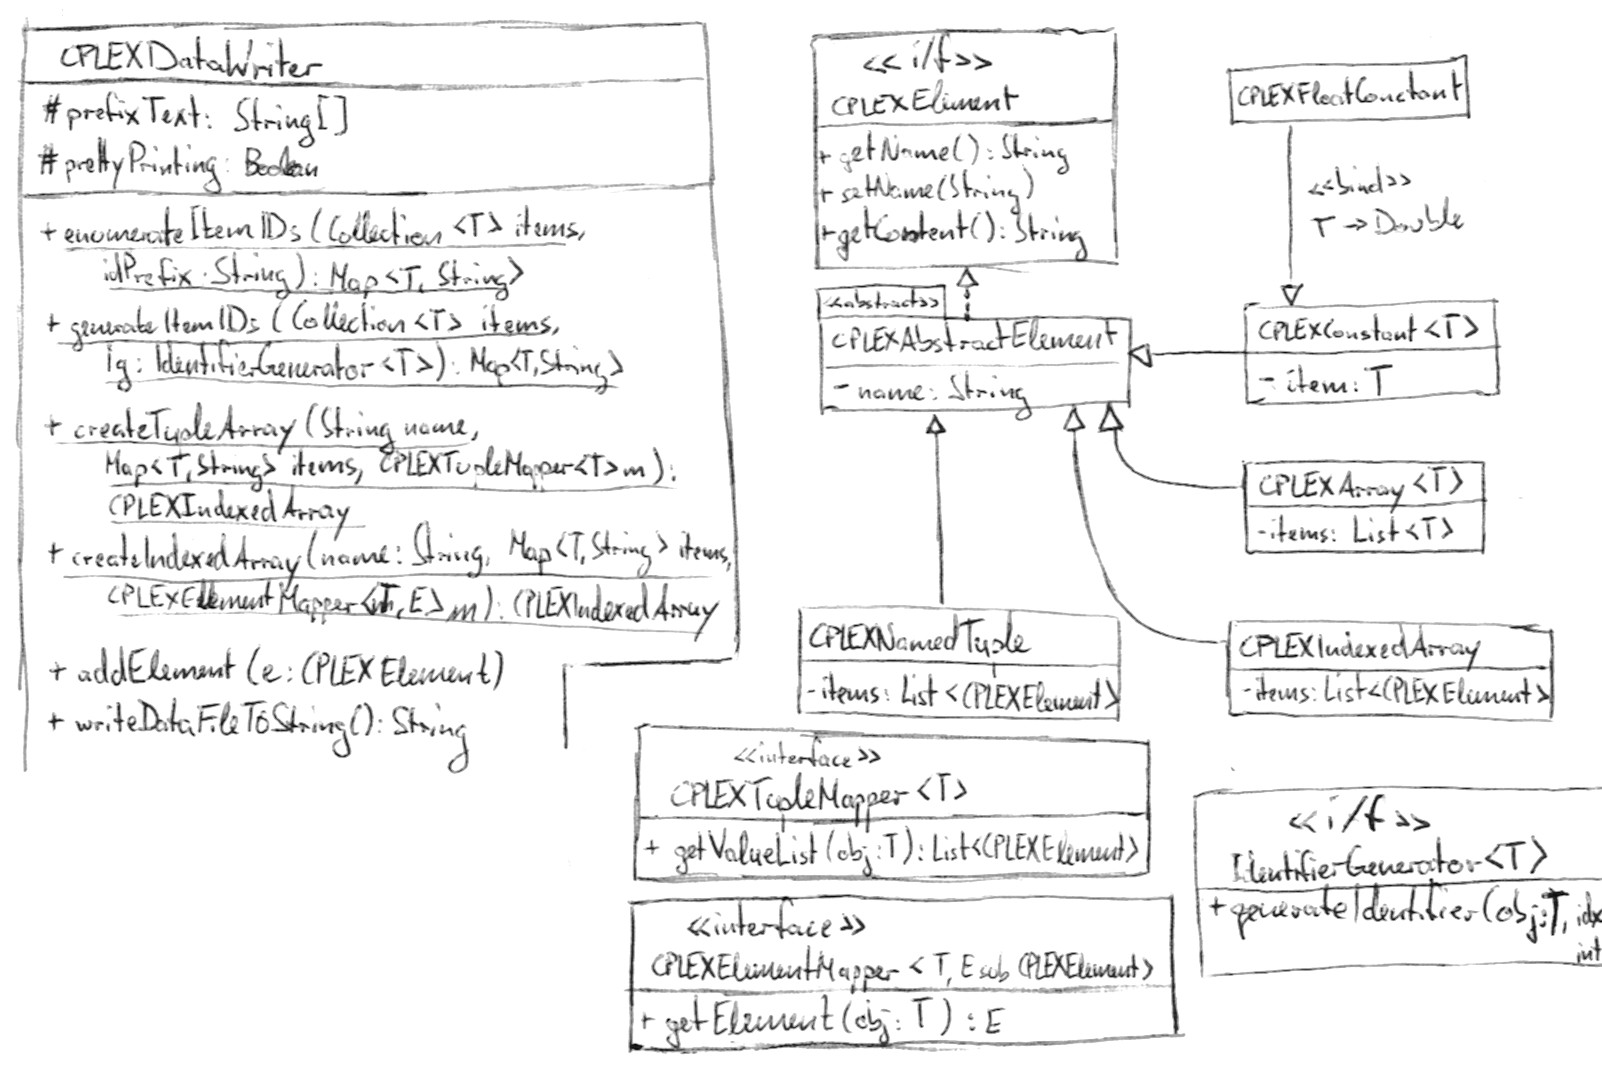 CPLEXDataWriter
# prefixText: String[]
# prettyPrinting: Boolean
+ enumerateItemIDs (Collection <T> items,
idPrefix: String): Map<T, String>
+ generateItemIDs (Collection<T> items,
ig: IdentifierGenerator<T>): Map<T,String>
+ createTupleArray (String name,
Map<T,String> items, CPLEXTupleMapper<T> m):
CPLEXIndexedArray
+ createIndexedArray(name: String, Map<T,String> items,
CPLEXElementMapper<T, E> m): CPLEXIndexedArray
+ addElement (e: CPLEXElement)
+ writeDataFileToString(): String
<< i/f >>
CPLEXElement
+ getName(): String
+ setName(String)
+ getContent(): String
<<abstract>>
CPLEXAbstractElement
- name: String
CPLEXFloatConstant
<<bind>>
T -> Double
CPLEXConstant<T>
- item: T
CPLEXArray<T>
- items: List<T>
CPLEXNamedTuple
- items: List <CPLEXElement>
CPLEXIndexedArray
- items: List<CPLEXElement>
<<interface>>
CPLEXTupleMapper <T>
+ getValueList (obj: T): List<CPLEXElement>
<<interface>>
CPLEXElementMapper < T, E sub CPLEXElement>
+ getElement (obj: T) : E
<< i/f >>
IdentifierGenerator<T>
+ generateIdentifier(obj:T, idx
int